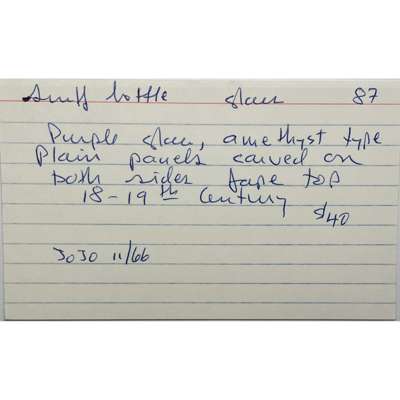 Snuff bottle glass 87
Purple glass, amethyst type
Plain panels carved on
both sides jape top
18-19th Century
$40
JoJo 11/66